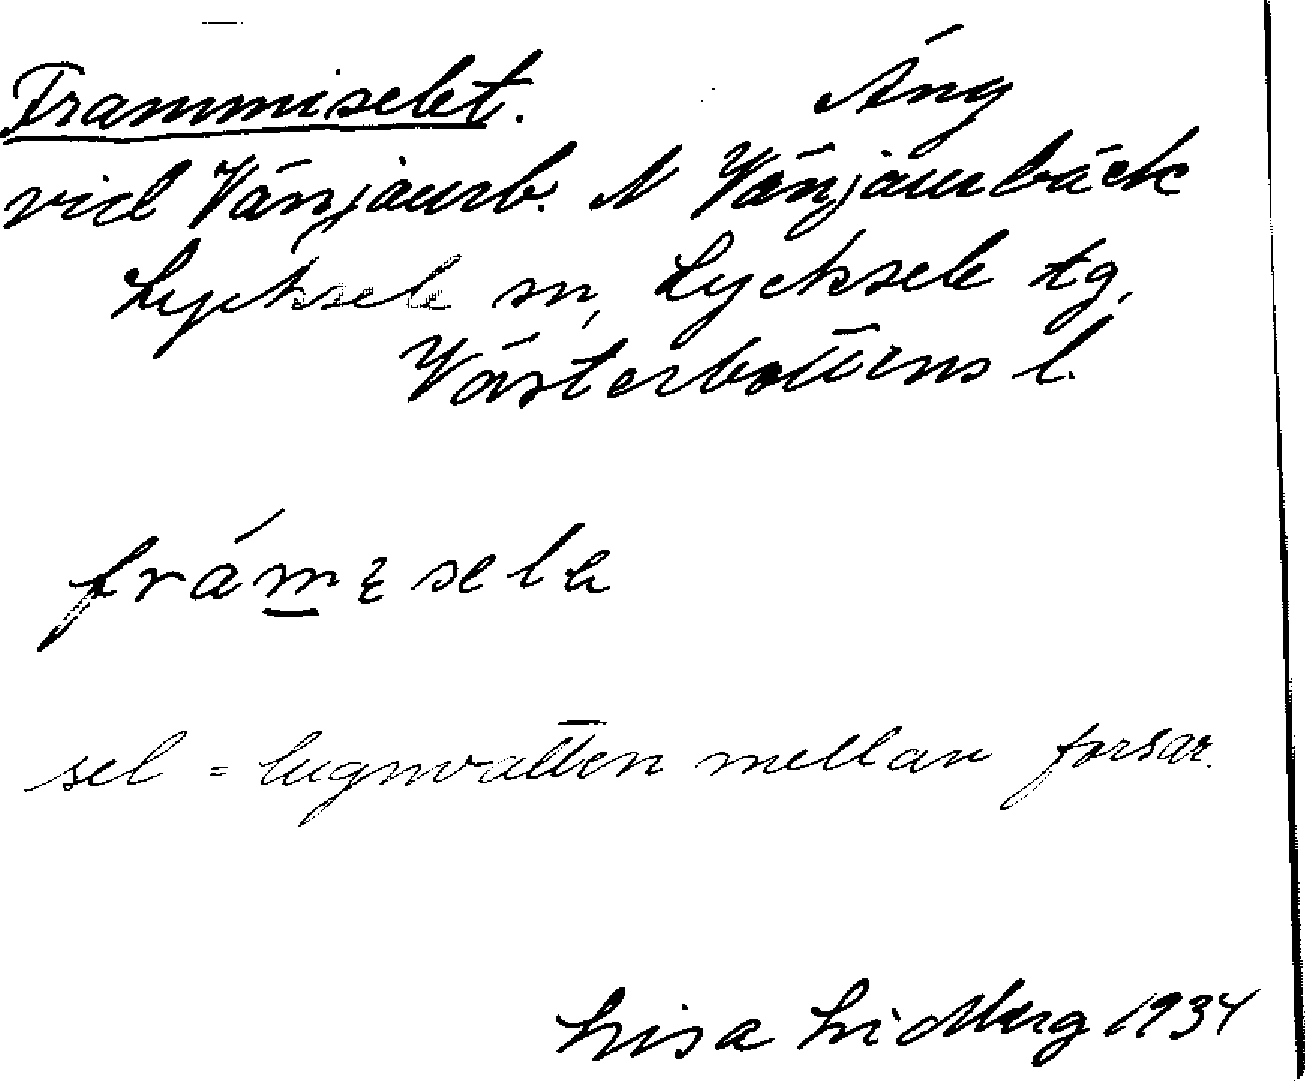 Frammiselet. Äng
vid Vänjaurb. N Vänjaurbäck
Lycksele sn, Lycksele tg,
Västerbottens l.
frámɛsele
sel = lugnvatten mellan forsar.
Lisa Lidberg 1934